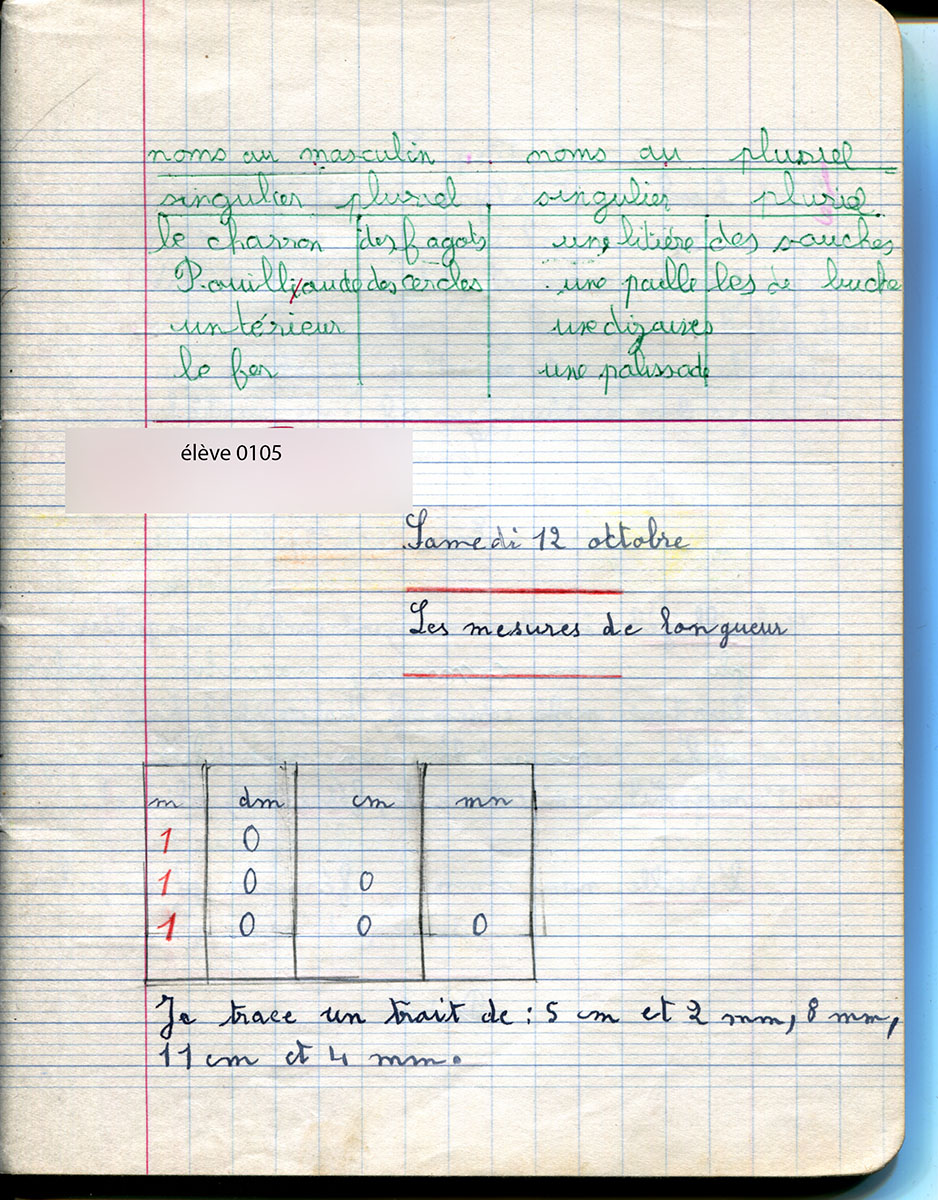 noms au masculin . noms au pluriel
singulier pluriel . singulier pluriel.
le charron des fagots une litière des souches
des cercles une paille les de buche
un térieur une dizaines
le fer une palissade
élève 0105
Samedi 12 octobre
Les mesures de longueur
m dm cm mm
1 0
1 0 0
1 0 0 0
Je trace un trait de : 5 cm et 2 mm, 8 mm,
11 cm et 4 mm.